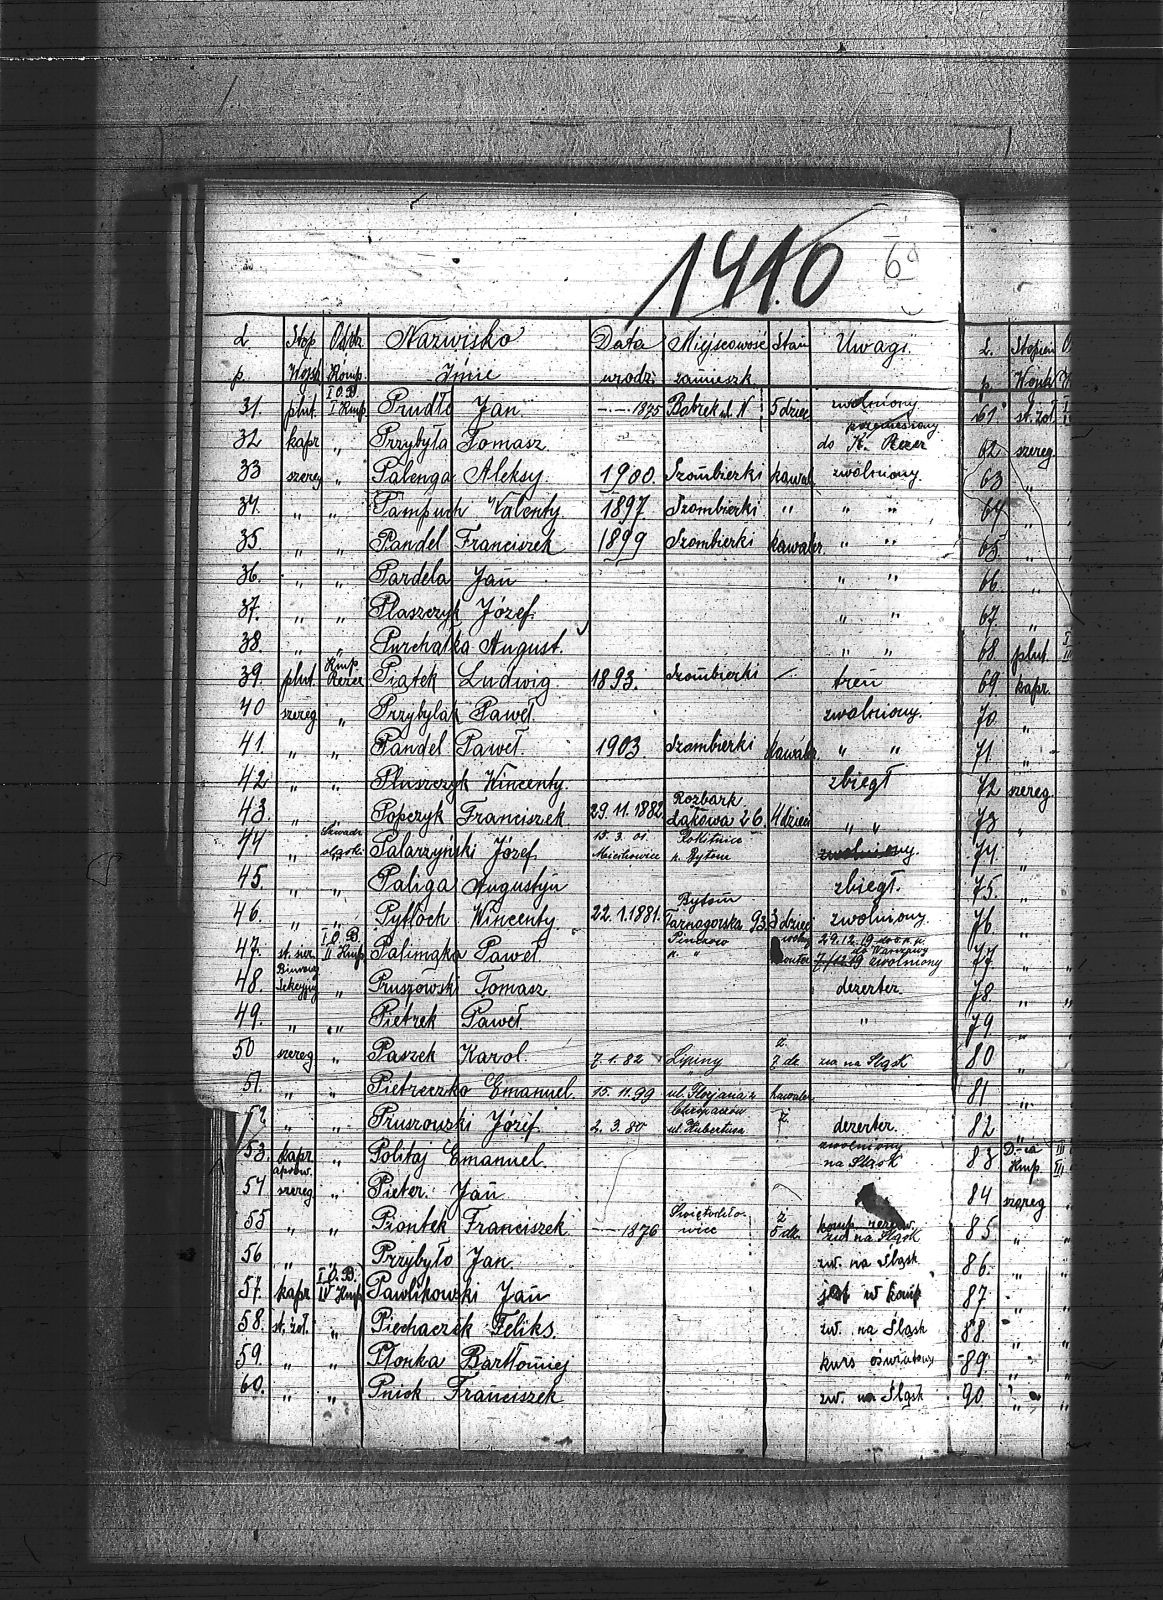 1410 6a
L. p. Stop. Wojsk Oddz. Komp. Nazwisko Imie Data urodz. Miejscowość zamieszk. Stan Uwagi.
31. plut. I O.B. I Kmp. Prudło Jan - - 1875 Bobrek ul. N 5 dziec zwolniony
32 kapr „ Przybyła Tomasz. przeniesiony do K. Rezer
33 szereg „ Palenga Aleksy. 1900. Szombierki kawal. zwolniony.
34. „ „ Pampuch Walenty. 1897. Szombierki „ „ „
35. „ „ Pandel Franciszek 1899 Szombierki kawaler. „ „
36. „ „ Pardela Jan „ „
37. „ „ Płaszczyk Józef. „ „
38. „ „ Purchałka August. „ „
39. plut. Kmp. Rezer Piątek Ludwig 1893. Szombierki - tren
40 szereg „ Przybylak Paweł. zwolniony.
41. „ „ Pandel Paweł. 1903. Szombierki kawaler. „ „
42. „ „ Pluszczyk Wincenty. zbiegł
43. „ „ Popczyk Franciszek 29.11.1882. Rozbark Łąkowa 26. 4 dzieci „ „
44 „ Szwadr. Palarzyński Józef 15.3.01. Miechowice Rokitnica p. Bytom zwolniony.
45 „ „ Paliga Augustyn zbiegł.
46. „ „ Pytloch Wincenty 22.1.1881. Bytom Tarnogorska 93. 3 dzieci zwolniony
47. st. sier. I O.B. II Kmp. Palimąka Paweł Pinczow 29.12.19 do Warszawy 7/12.19 zwolniony
48. „ Pruszowski Tomasz. dezerter.
49. „ „ Pietrek Paweł „
50 szereg „ Paszek Karol. 7.1.82 Lipiny ż. 7 dz. zw na Śląsk
51. „ „ Pietreczko Emanuel. 15.11.99 ul. Florjana 2 kawaler.
52. „ „ Pruszowski Józef. 2.3.80 Chropaczów ul. Hubertusa 7. dezerter.
53. kapr. aprow. „ Politaj Emanuel. zwolniony na Śląsk
54. szereg „ Pieter. Jan
55 „ „ Piontek Franciszek - - 1876 Świętochłowice ż 5 dz. komp. rezerw. zw. na Śląsk
56 „ Przybyło Jan. zw. na Śląsk
57. kapr I O.B. IV Kmp Pawlikowski Jan jest w komp
58. st. żoł. „ Piechaczek Feliks. zw. na Śląsk
59. „ „ Płonka Bartłomiej kurs oświatowy
60. „ „ Pniok Franciszek zw. na Śląsk
L. p. Stopień Wojsk
61. st. żoł.
62 szereg.
63 „
64 „
65 „
66. „
67. „
68 plut.
69. kapr.
70. „
71. „
72 szereg.
73 „
74. „
75. „
76. „
77. „
78. „
79. „
80 „
81 „
82 „
83 D-ca Kmp. III
84 szereg „
85. „
86. „
87 „
88. „
89. „
90. „